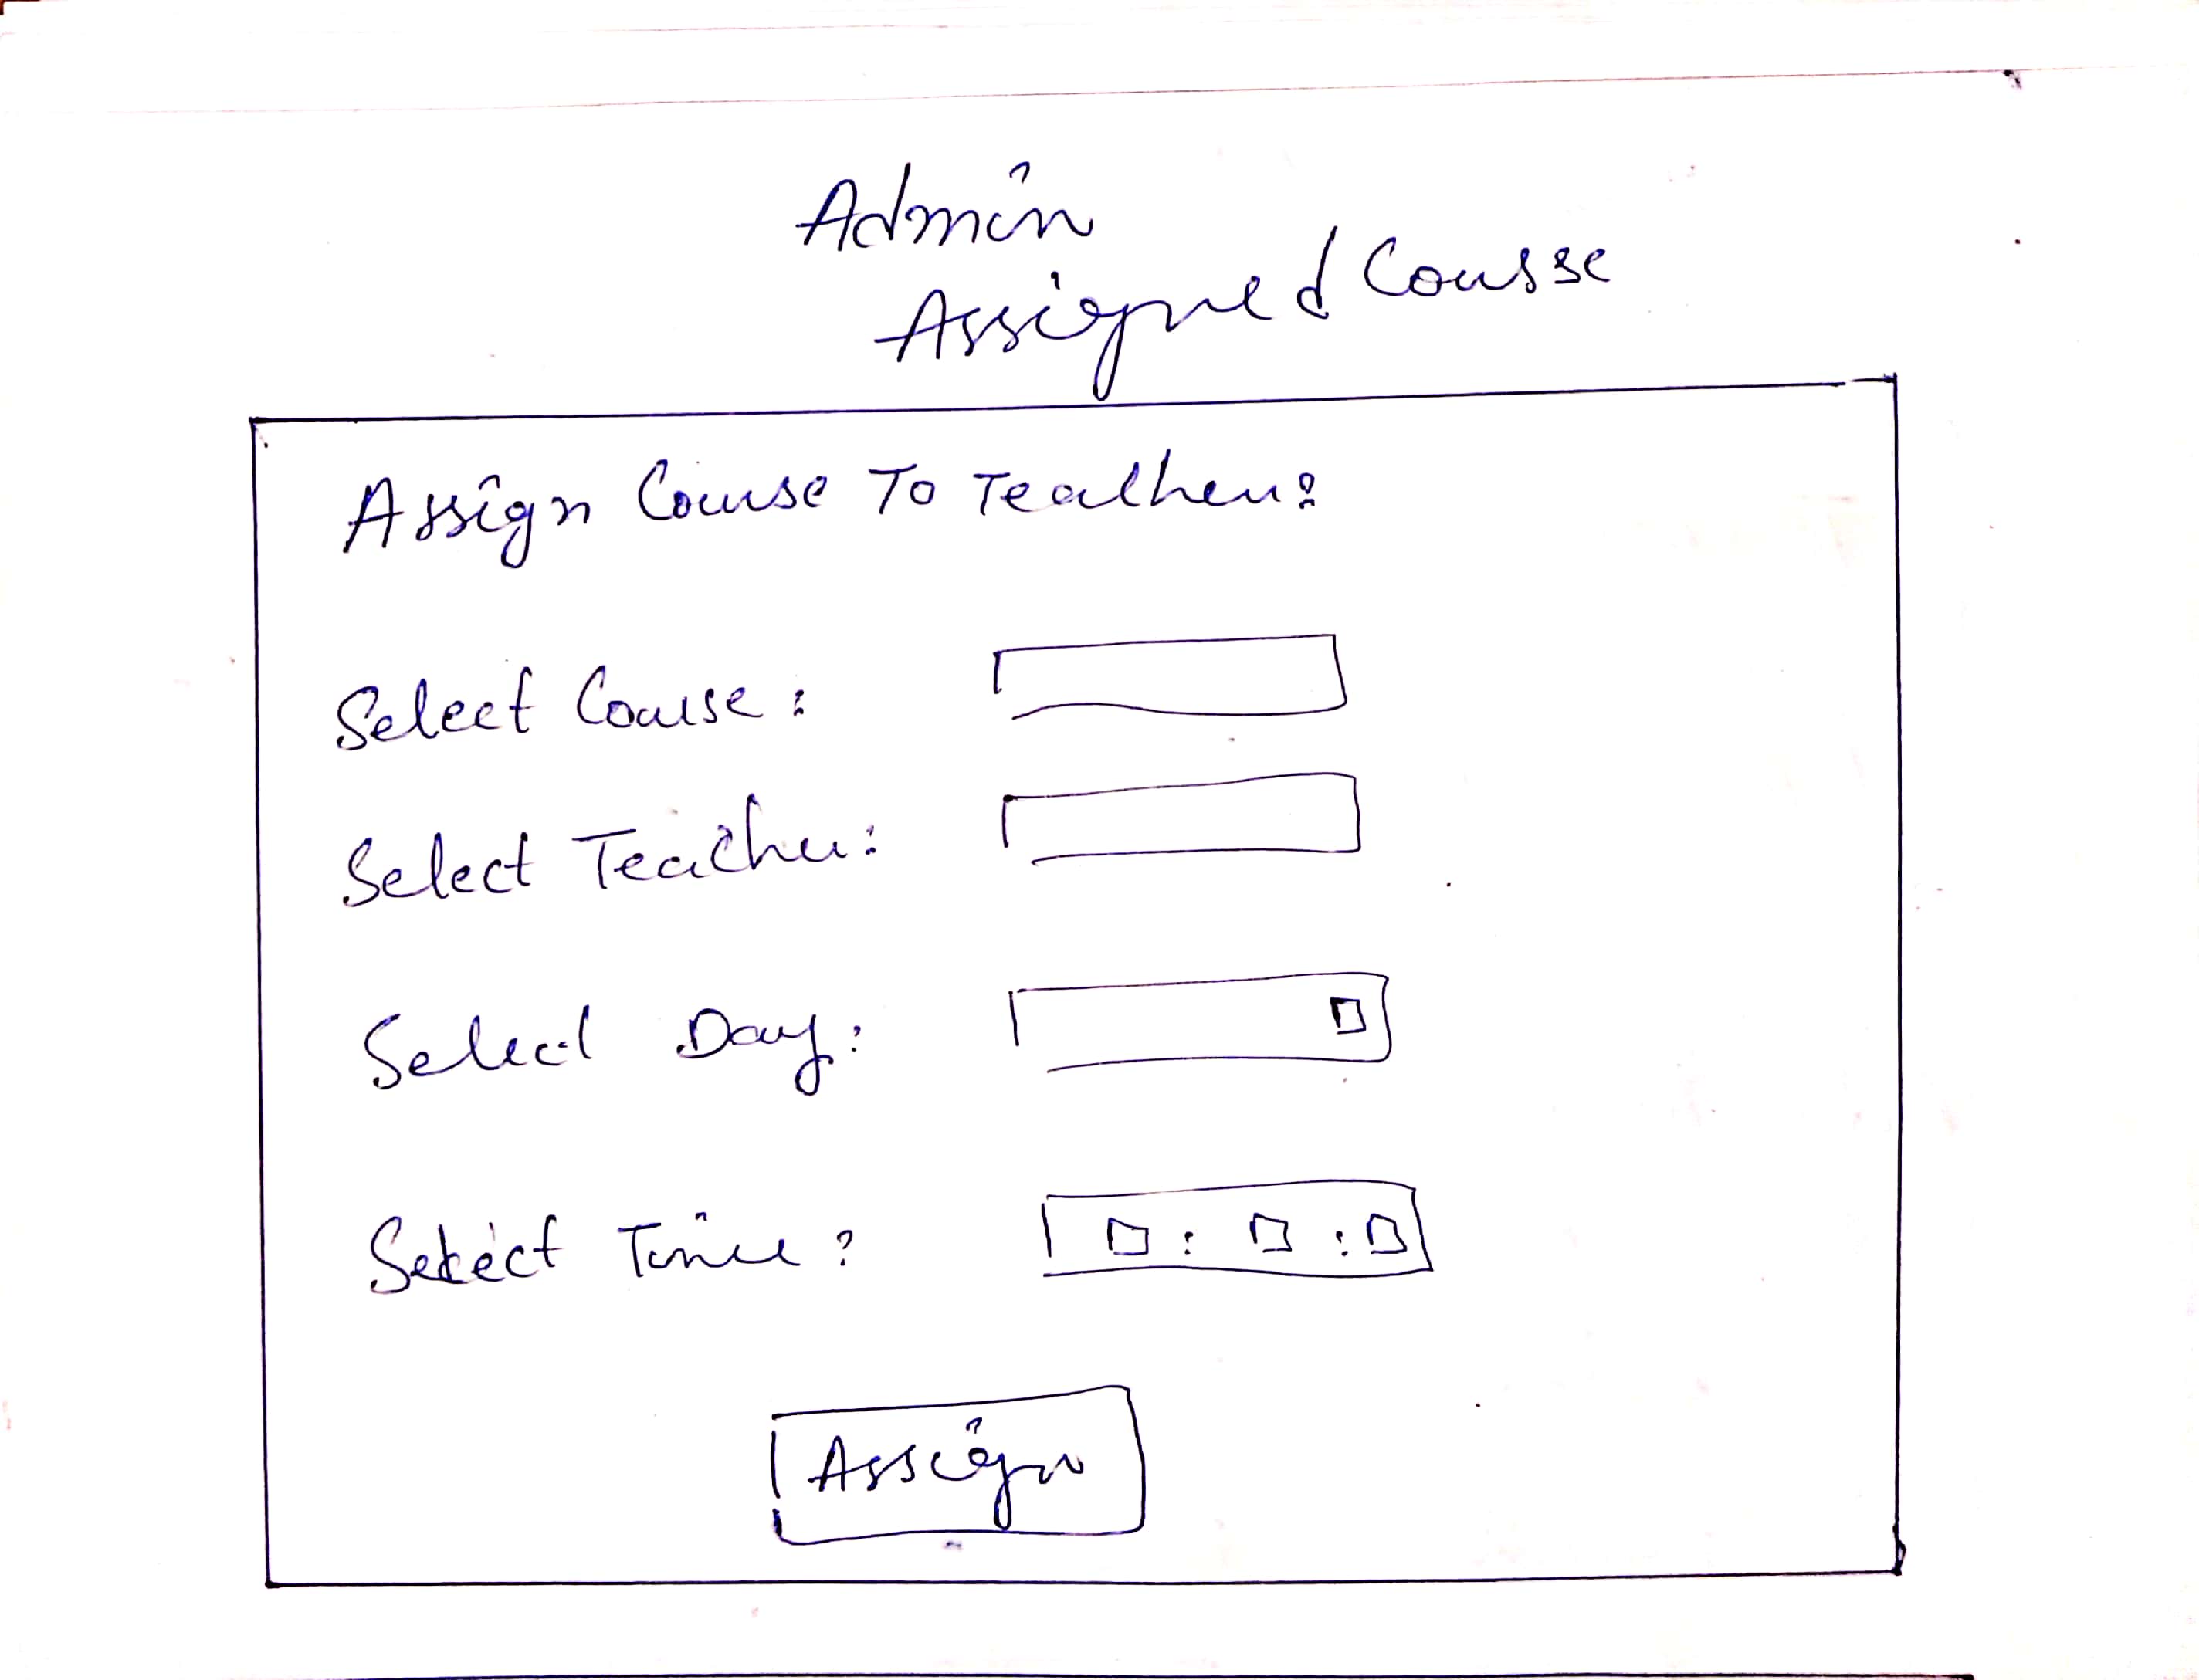 Admin
Assigned Course
Assign Course To Teacher:
Select Course :
Select Teacher:
Select Day:
Select Time :
Assign